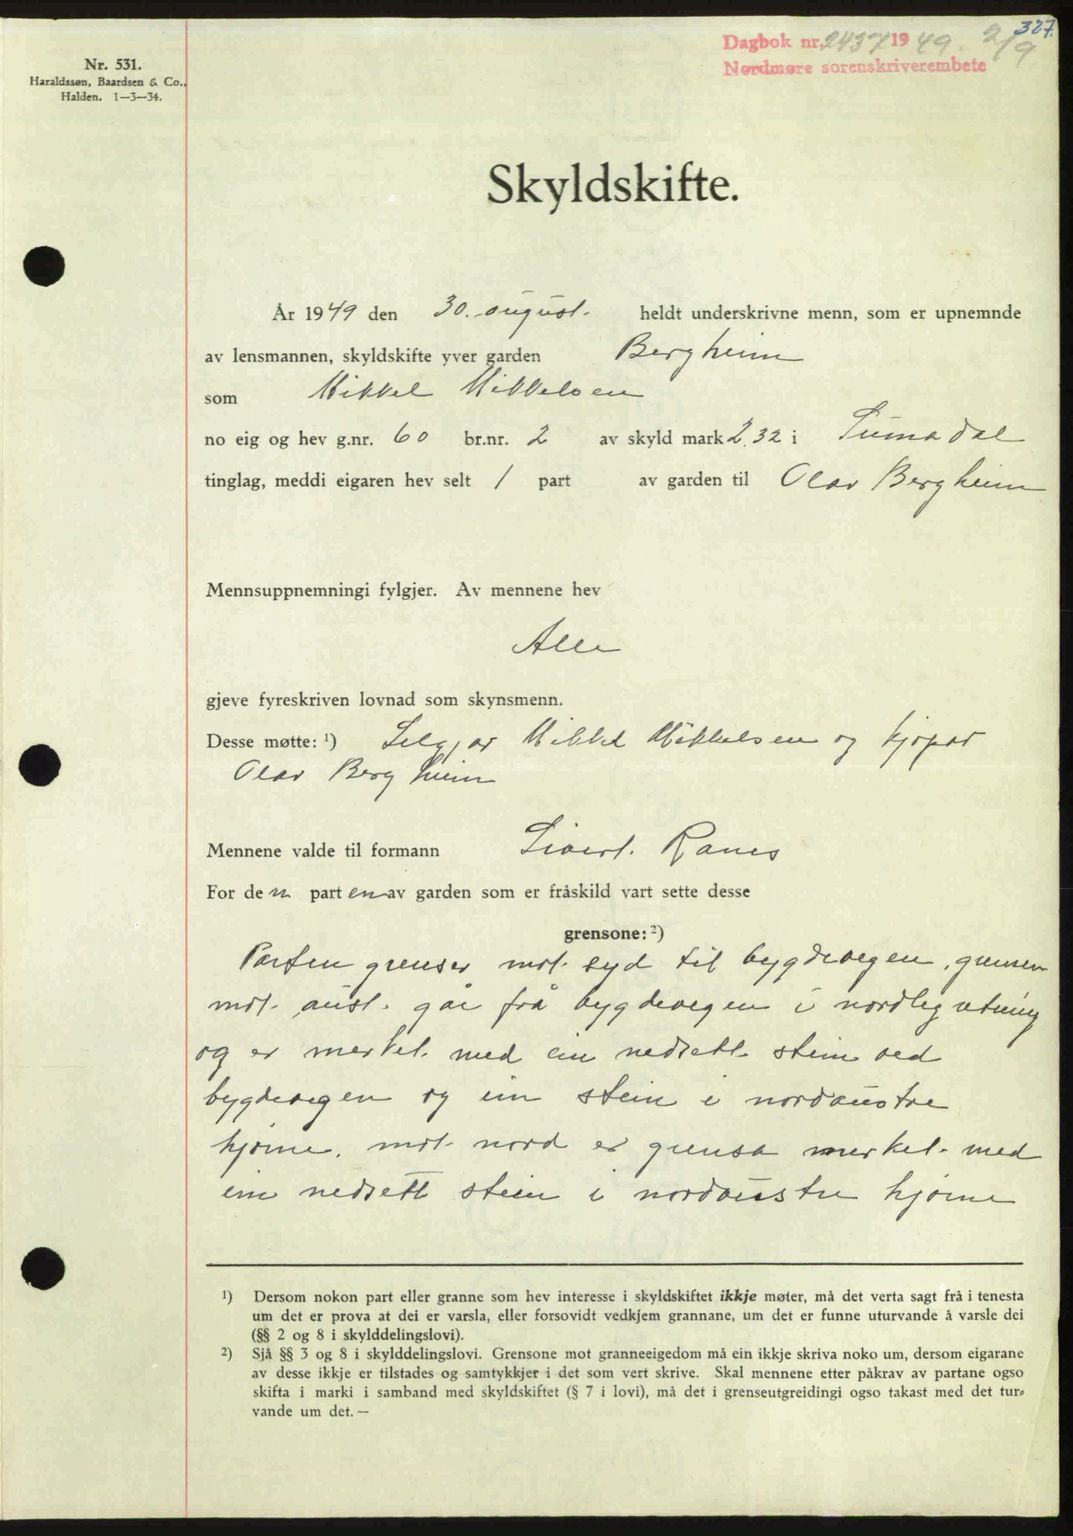 327.
Dagbok nr. 2437 1949. 2/9
Nordmøre sorenskriverembete
Nr. 531.
Haraldssøn, Baardsen & Co.,
Halden. 1—3—34.
Skyldskifte.
År 1949 den 30. august. heldt underskrivne menn, som er upnemnde
av lensmannen, skyldskifte yver garden Bergheim
som Mikkel Mikkelsen
no eig og hev g.nr. 60 br.nr. 2 av skyld mark 2.32 i Surnadal
tinglag, meddi eigaren hev selt 1 part av garden til Olav Bergheim
Mennsuppnemningi fylgjer. Av mennene hev
Alle
gjeve fyreskriven lovnad som skynsmenn.
Desse møtte: ¹) Selgjar Mikkel Mikkelsen og kjøpar
Olav Bergheim
Mennene valde til formann Sivert Ranes
For den parten av garden som er fråskild vart sette desse
grensone: ²)
Parten grenser mot syd til bygdevegen, grensen
mot aust. går frå bygdevegen i nordleg retning
og er merket med ein nedsett stein ved
bygdevegen og ein stein i nordaustre
hjørne. mot nord er grensa merket med
ein nedsett stein i nordaustre hjørne
¹) Dersom nokon part eller granne som hev interesse i skyldskiftet ikkje møter, må det verta sagt frå i tenesta
um det er prova at dei er varsla, eller forsovidt vedkjem grannane, um det er funne uturvande å varsle dei
(§§ 2 og 8 i skylddelingslovi).
²) Sjå §§ 3 og 8 i skylddelingslovi. Grensone mot granneeigedom må ein ikkje skriva noko um, dersom eigarane
av desse ikkje er tilstades og samtykkjer i det som vert skrive. Skal mennene etter påkrav av partane ogso
skifta i marki i samband med skyldskiftet (§ 7 i lovi), må det i grenseutgreidingi ogso takast med det tur-
vande um det. —